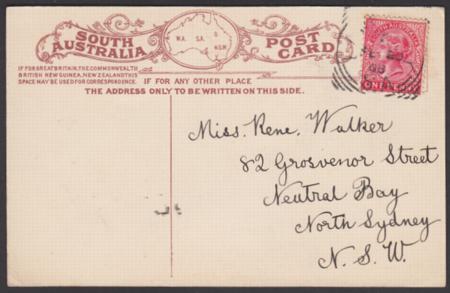 SOUTH AUSTRALIA
W.A. S.A. Q. N.S.W.
POST CARD
IF FOR GREAT BRITAIN, THE COMMONWEALTH
BRITISH NEW GUINEA, NEW ZEALAND THIS
SPACE MAY BE USED FOR CORRESPONDENCE.
IF FOR ANY OTHER PLACE
THE ADDRESS ONLY TO BE WRITTEN ON THIS SIDE.
Miss. Rene. Walker
82 Grosvenor Street
Neutral Bay
North Sydney
N. S. W.